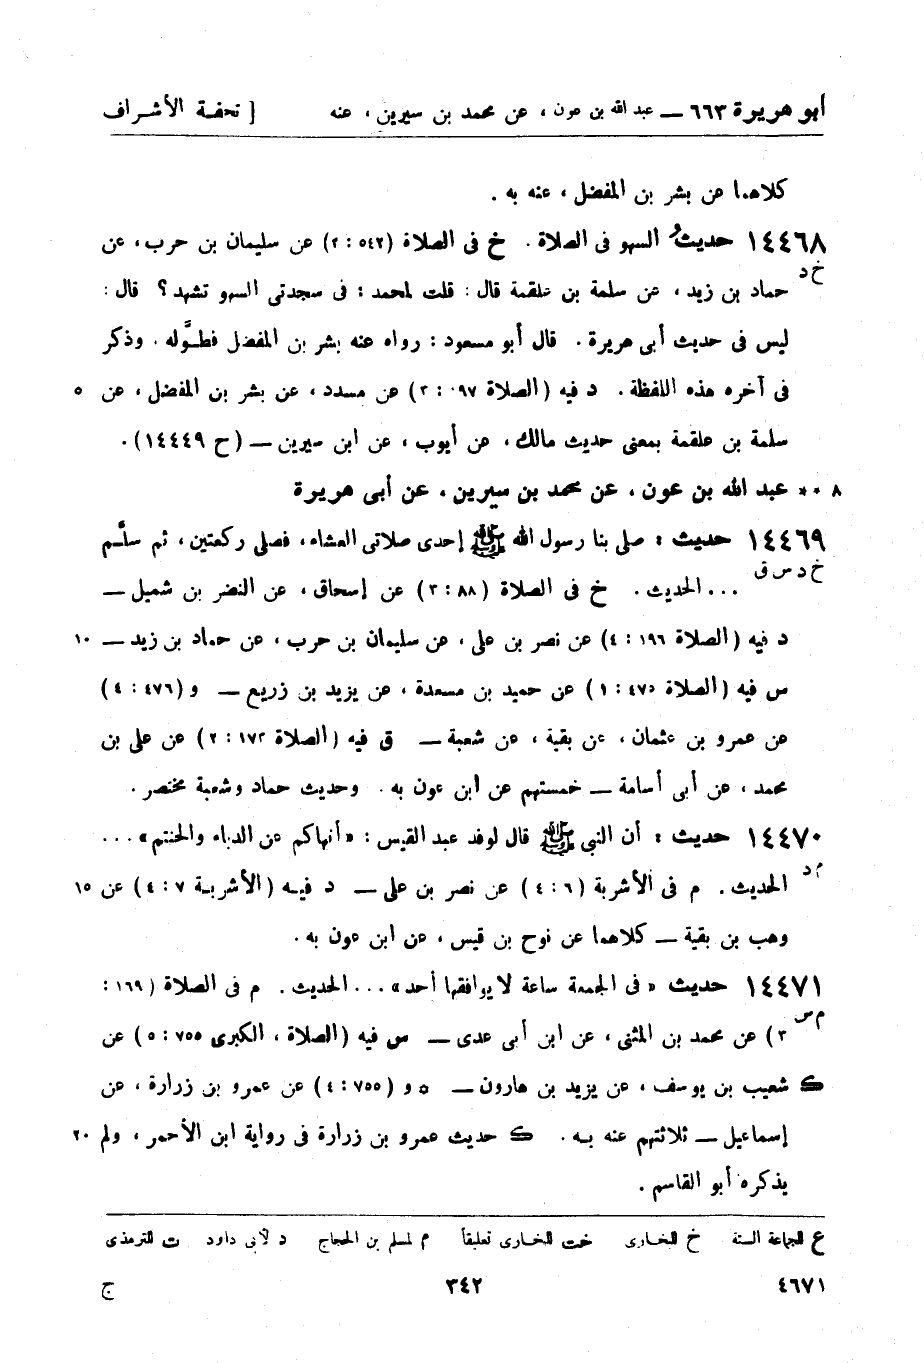 أبو هريرة ٦٦٣ — عبد الله بن عون ، عن محمد بن سيرين ، عنه [ تحفة الأشراف
كلاهما عن بشر بن المفضل ، عنه به .
١٤٤٦٨ حديث السهو فى الصلاة . خ فى الصلاة (٥٤٢ : ٢) عن سليمان بن حرب ، عن
خ د
حماد بن زيد ، عن سلمة بن علقمة قال : قلت لمحمد : فى سجدتى السهو تشهد ؟ قال :
ليس فى حديث أبى هريرة . قال أبو مسعود : رواه عنه بشر بن المفضل فطوَّله . وذكر
فى آخره هذه اللفظة . د فيه (الصلاة ٠٩٧ : ٣) عن مسدد ، عن بشر بن المفضل ، عن ٥
سلمة بن علقمة بمعنى حديث مالك ، عن أيوب ، عن ابن سيرين — (ح ١٤٤٤٩) .
٨ ٠* عبد الله بن عون ، عن محمد بن سيرين ، عن أبى هريرة
١٤٤٦٩ حديث : صلى بنا رسول الله ﷺ إحدى صلاتى العشاء ، فصلى ركعتين ، ثم سلَّم
خ د س ق
... الحديث . خ فى الصلاة (٨٨ : ٣) عن إسحاق ، عن النضر بن شميل —
د فيه (الصلاة ١٩٦ : ٤) عن نصر بن على ، عن سليمان بن حرب ، عن حماد بن زيد — ١٠
س فيه (الصلاة ٤٧٥ : ١) عن حميد بن مسعدة ، عن يزيد بن زريع — و (٤٧٦ : ٤)
عن عمرو بن عثمان ، عن بقية ، عن شعبة — ق فيه (الصلاة ١٧٢ : ٢) عن على بن
محمد ، عن أبى أسامة — خمستهم عن ابن عون به . وحديث حماد وشعبة مختصر .
١٤٤٧٠ حديث : أن النبى ﷺ قال لوفد عبد القيس : «أنهاكم عن الدباء والحنتم» ...
م د
الحديث . م فى الأشربة (٦ : ٤) عن نصر بن على — د فيه (الأشربة ٧ : ٤) عن ١٥
وهب بن بقية — كلاهما عن نوح بن قيس ، عن ابن عون به .
١٤٤٧١ حديث «فى الجمعة ساعة لا يوافقها أحد» ... الحديث . م فى الصلاة (١٦٩ :
م س
٣) عن محمد بن المثنى ، عن ابن أبى عدى — س فيه (الصلاة ، الكبرى ٧٥٥ : ٥) عن
ك شعيب بن يوسف ، عن يزيد بن هارون — ٥ و (٧٥٥ : ٤) عن عمرو بن زرارة ، عن
إسماعيل — ثلاثتهم عنه به . ك حديث عمرو بن زرارة فى رواية ابن الأحمر ، ولم ٢٠
يذكره أبو القاسم .
ع للجماعة الستة خ للبخارى خت للبخارى تعليقاً م لمسلم بن الحجاج د لأبى داود ت للترمذى
٤٦٧١ ٣٤٢ ج